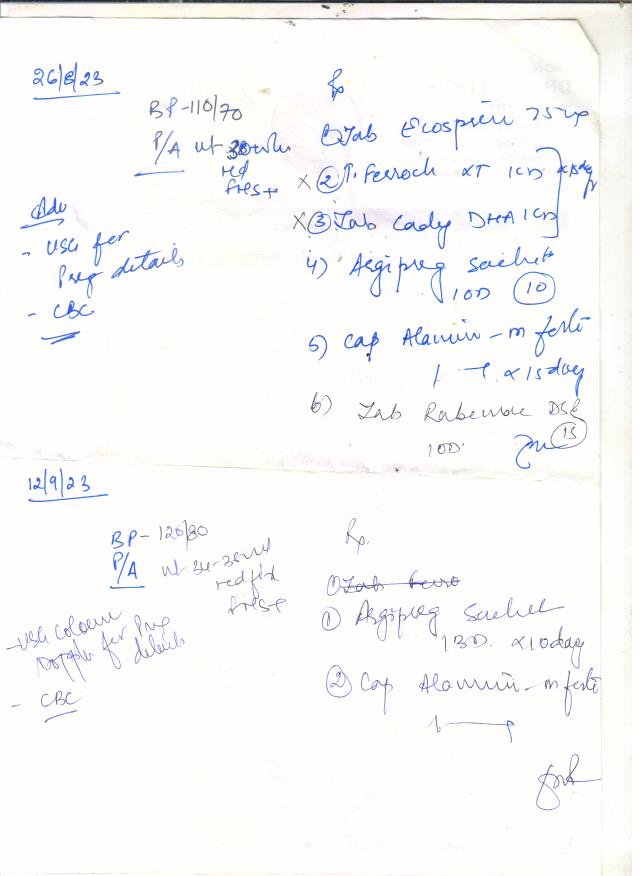 26/8/23
BP-110/70
P/A ut
red
Adv
- USG for
Preg details
- CBC
Rp
1) Tab Ecosprin 75 mg
x 2) T. Ferroch XT 1OD x 15 day
x 3) Tab Cady DHA 1OD
4) Argipreg Sachet
1OD 10
5) Cap Alamin-m forte
1 - 1 x 15 day
6) Tab DSR
1OD 15
12/9/23
BP-120/80
P/A ut 34-35 wk
red
- USG colour
Doppler for Preg
details
- CBC
Rp.
1) Tab
1) Argipreg Sachet
x 10 day
2) Cap Alamin-m forte